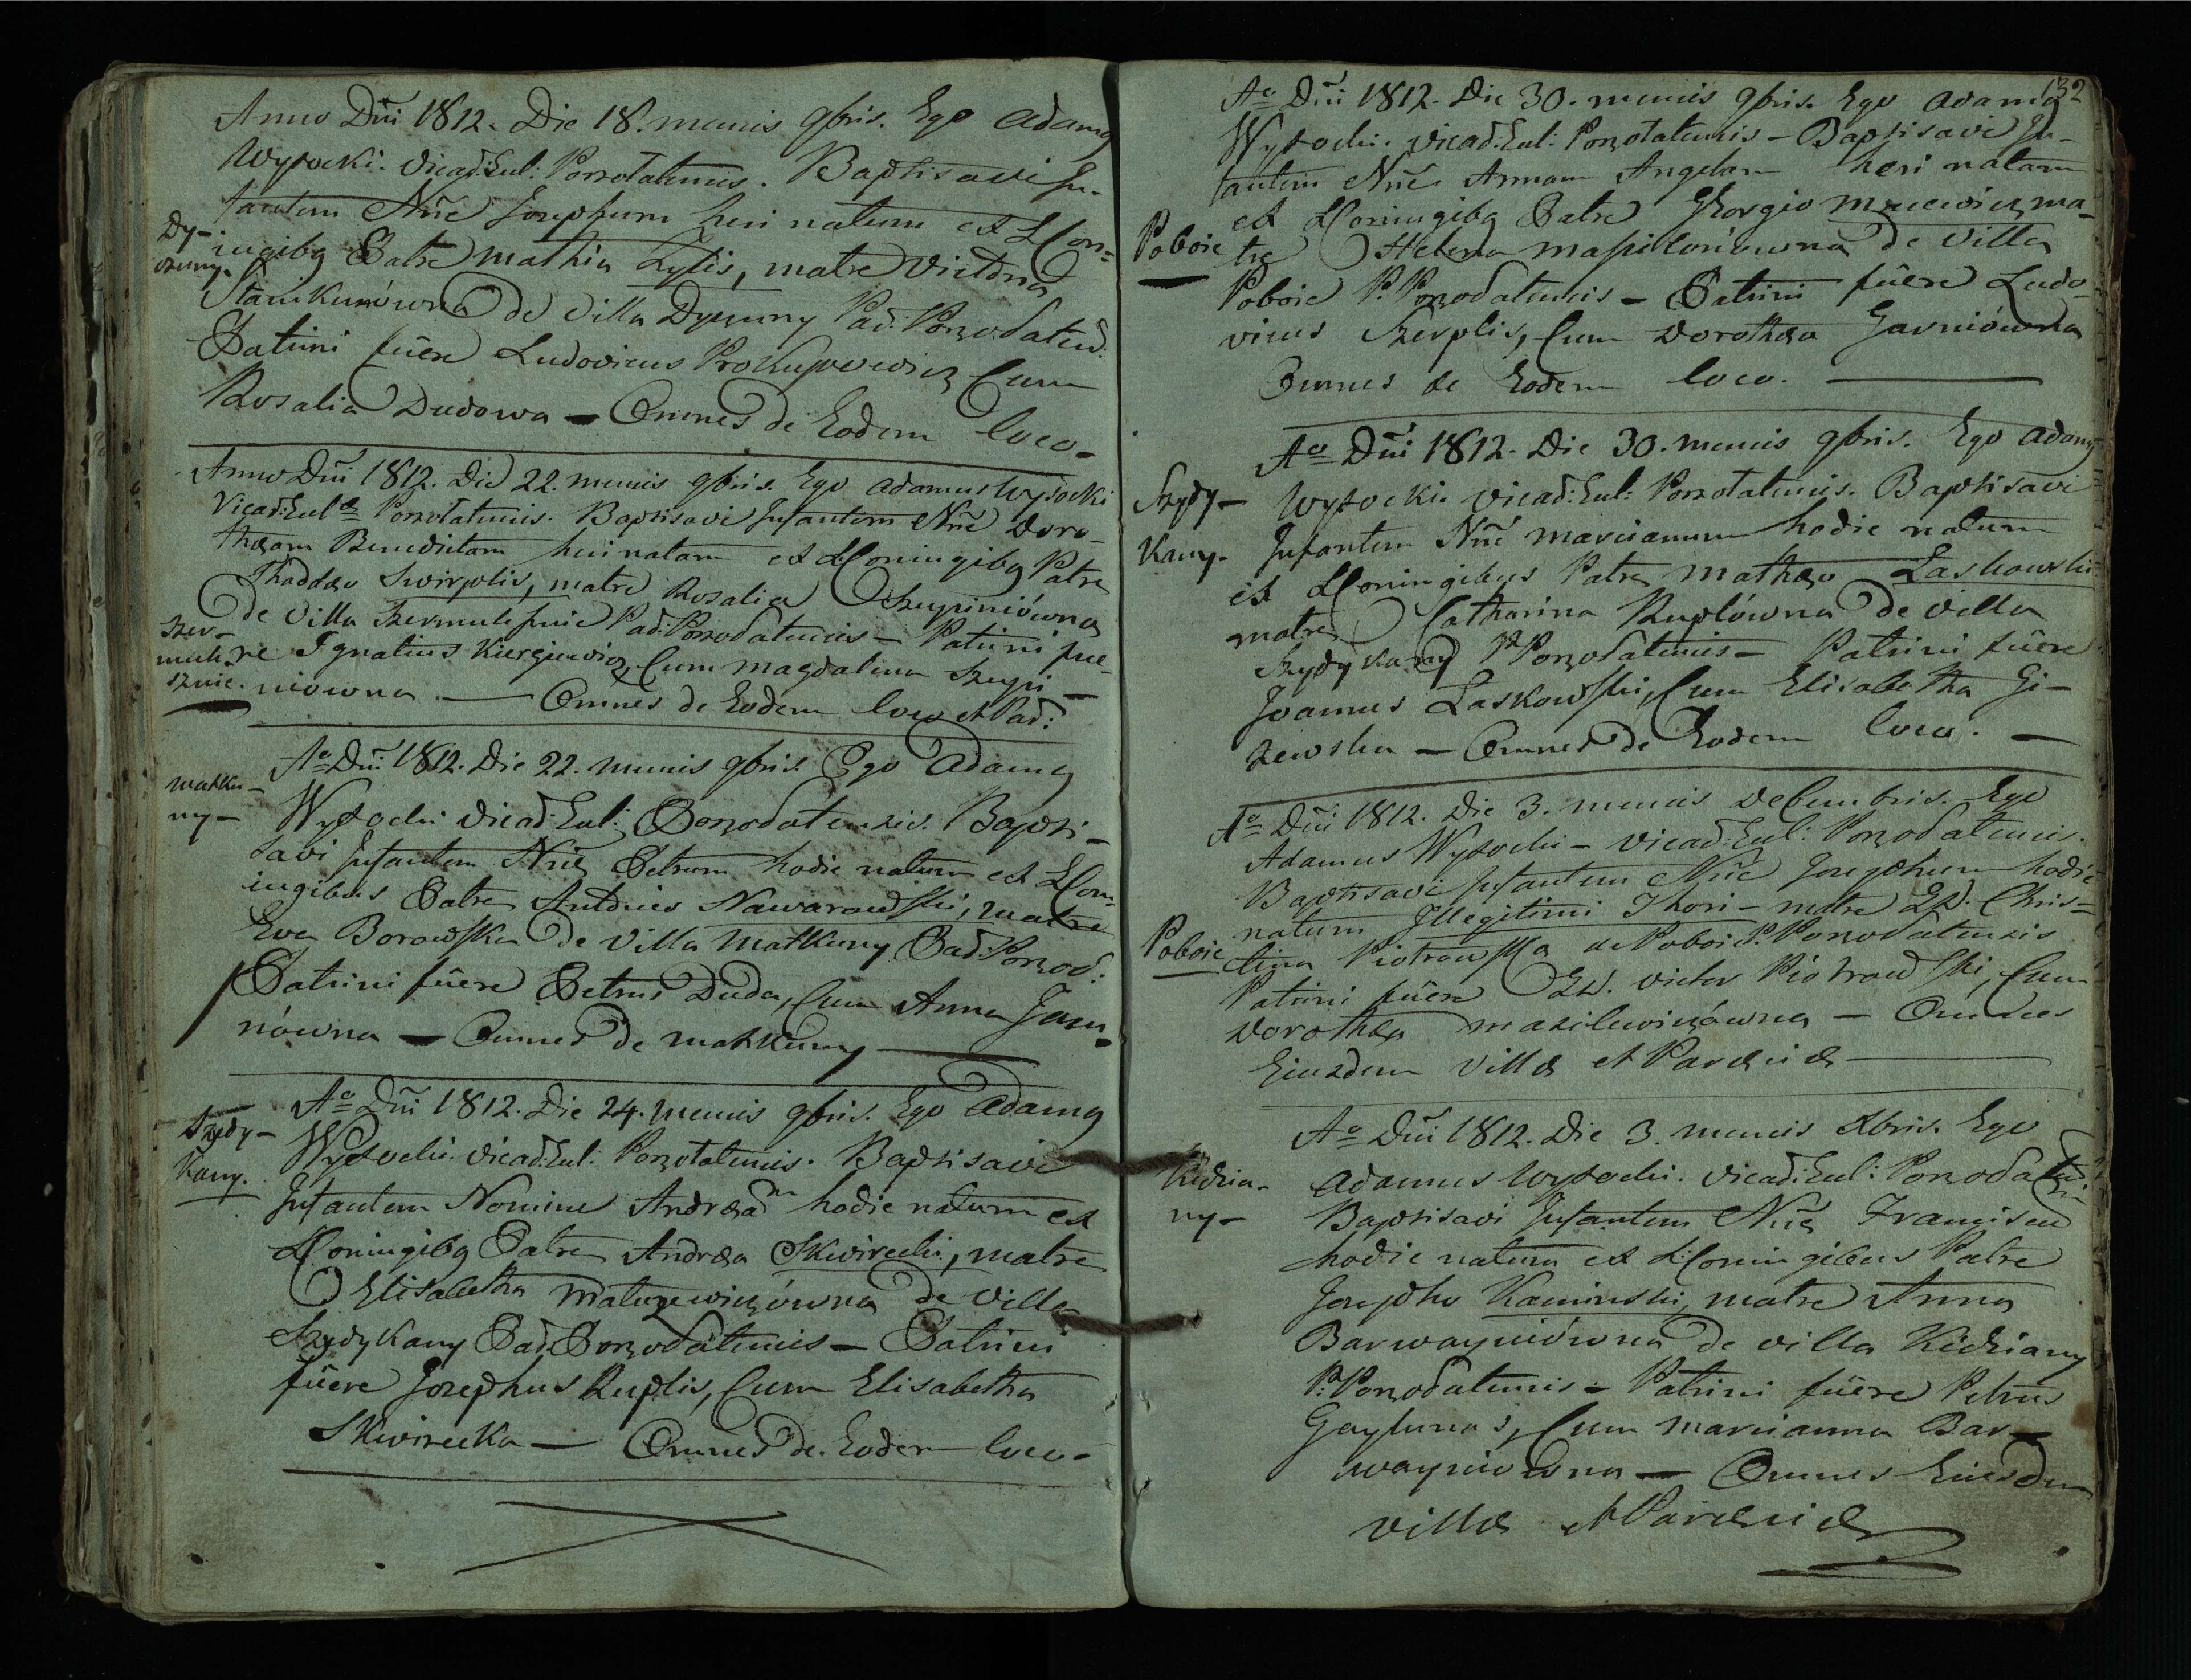 Anno Dni 1812. Die 18. mensis 9bris. Ego Adamg
Wysocki. Vicad: Eul: Porzotatensis. Baptisavi In-
fantem Nne Josephum heri natum ex LLCon=
Dy-
iugibg Patre Mathia Zylis, matre Victona
czuny.
Stankunówna de Villa Dyczuny Pad: Porzodatens:
Patrini fuere Ludovicus Prokupowicz Cum
Rosalia Dudowa - Omnes de Eodem loco-
Anno Dni 1812. Die 22. mensis 9bris. Ego Adamus Wysocki
Vicad: Eul: Porzotatensis. Baptisavi Infantem Nne Doro-
theam Benedictam heri natam ex LLConiugibg Patre
Thaddeo Swirplis, matre Rosalia Szupiniówna
de Villa Szermuksznie Pad: Porzodatensis - Patrini fue-
Szer-
muk-
sznie.
re Ignatius Kiergiewicz, Cum Magdalena Szupi-
niowna - Omnes de Eodem loco et Pad:
Ao Dni 1812. Die 22. mensis 9bris. Ego Adamg
Matku-
ny-
Wysocki Vicad: Eul: Porzodatensis. Bapti-
savi Infantem Nne Petrum hodie natum ex LLCon=
iugibus Patre Antonio Nawarowski, matre
Eva Borowska de Villa Matkuny Pad: Porzod:
Patrini fuere Petrus Duda, Cum Anna Jan-
nówna - Omnes de Matkuny
Ao Dni 1812. Die 24. mensis 9bris. Ego Adamg
Szydy-
Kany.
Wysocki. Vicad: Eul: Porzotatensis. Baptisavi
Infantem Nomine Andream hodie natum ex
LLConiugibg Patre Andrea Skwirecki, matre
Elisabetha Matuzewiczówna de Villa
Szydykany Pad: Porzodatensis - Patrini
fuere Josephus Ruplis, Cum Elisabetha
Skwirecka - Omnes de Eodem loco-
132
Ao Dni 1812. Die 30. mensis 9bris. Ego Adamg
Wysocki. Vicad: Eul: Porzotatensis - Baptisavi In-
fantem Nne Annam Angelam heri natam
ex LLConiugibg Patre Georgio Mucewicz, ma-
Poboie
tre Helena Maszilonówna de Villa
Poboie P. Porzodatensis - Patrini fuere Ludo-
vicus Szerplis, Cum Dorothea Garniówna
Omnes de Eodem loco.
Ao Dni 1812. Die 30. mensis 9bris. Ego Adamg
Szydy-
Kany.
Wysocki. Vicad: Eul: Porzotatensis. Baptisavi
Infantem Nne Marcianum hodie natum
ex LLConiugibus Patre Matheo Laskowski
matre Catharina Ruplówna de Villa
Szydykany P. Porzodatensis - Patrini fuere
Joannes Laskowski, Cum Elisabetha Gi-
zewska - Omnes de Eodem loco.
Ao Dni 1812. Die 3. mensis Decembris. Ego
Adamus Wysocki - Vicad: Eul: Porzodatensis.
Baptisavi Infantem Nne Josephum hodie
natum Illegitimi Thori - matre GD. Chris=
Poboie
tina Piotrowska de Poboie P. Porzodatensis
Patrini fuere GD. Victor Piotrowski, Cum
Dorothea Mazilewiczówna - Omnes
Eiusdem Villæ et Paræciæ
Ao Dni 1812. Die 3. mensis Xbris. Ego
Kidzia-
ny-
Adamus Wysocki. Vicad: Eul: Porzodaten:
Baptisavi Infantem Nne Franciscu
hodie natum ex LLConiugibus Patre
Josepho Kaminski, matre Anna
Barwayniówna de Villa Kidziany
P. Porzodatensis - Patrini fuere Petrus
Gaylunas, Cum Marcianna Bar-
wayniówna - Omnes Eiusdem
Villæ et Paræciæ